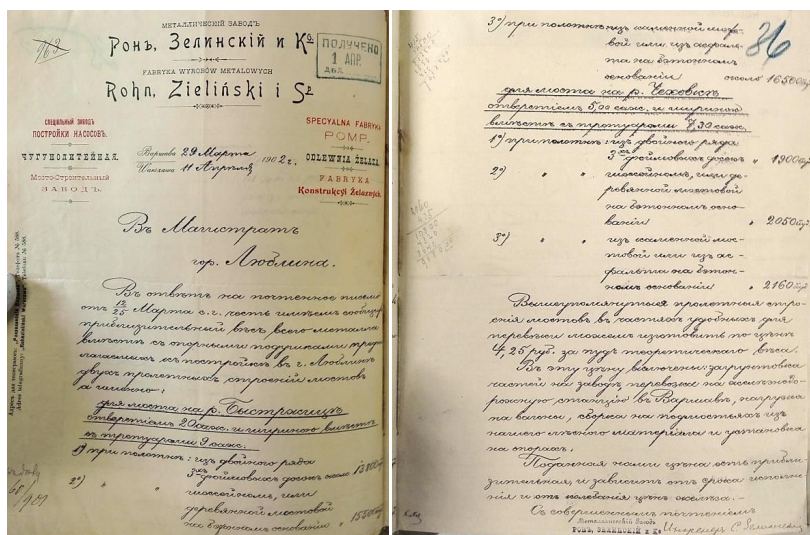 МЕТАЛЛИЧЕСКІЙ ЗАВОДЪ
Ронъ, Зелинскій и Кº
ФАБРИКА ВЫРОБОВЪ METALOWYCH
Rohn, Zieliński i Sp.
ПОЛУЧЕНО
1 АПР.
СПЕЦІАЛЬНЫЙ ЗАВОДЪ
ПОСТРОЙКИ НАСОСОВЪ.
ЧУГУНОЛИТЕЙНАЯ.
Мосто-Строительный
ЗАВОДЪ.
Варшава 29 Марта 1902 г.
Warszawa 11 Апрѣля
SPECYALNA FABRYKA
POMP.
ODLEWNIA ŻELAZA.
FABRYKA
Konstrukcyi Żelaznych.
Въ Магистратъ
гор. Люблина.
Въ отвѣтъ на почтенное письмо
отъ 12/25 Марта с. г. честь имѣемъ сообщить
приблизительный вѣсъ всего металла
вмѣстѣ съ опорными подушками предла-
гаемыхъ къ постройкѣ въ г. Люблинѣ
двухъ пролетныхъ строеній мостовъ
а именно:
для моста на р. Быстржицѣ
отверстіемъ 20 саж. и шириною вмѣстѣ
съ тротуарами 9 саж.
1º) при полотнѣ: изъ двойного ряда
3хъ дюймовыхъ досокъ около 13800 пуд.
2º) " " шоссейномъ, или
деревянной мостовой
на бетонномъ основаніи " 15500 пуд.
3º) при полотнѣ изъ каменной мосто-
вой или изъ асфаль-
та на бетонномъ
основаніи около 16500 пуд.
86
для моста на р. Чеховкѣ
отверстіемъ 5,00 саж. и шириною
вмѣстѣ съ тротуарами 7,30 саж.
1º) при полотнѣ: изъ двойного ряда
3хъ дюймовыхъ досокъ " 1900 пуд.
2º) " " шоссейномъ, или де-
ревянной мостовой
на бетонномъ осно-
ваніи " 2050 пуд.
3º) " " изъ каменной мос-
товой или изъ ас-
фальта на бетон-
номъ основаніи " 2160 пуд.
Вышеупомянутыя пролетныя стро-
енія мостовъ въ частяхъ удобныхъ для
перевозки можемъ изготовить по цѣнѣ
4,25 руб. за пудъ теоретическаго вѣса.
Въ эту цѣну включены: загрунтовка
частей на заводѣ, перевозка на желѣзнодо-
рожную станцію въ Варшавѣ, нагрузка
на вагоны, сборка на подмостяхъ изъ
нашего лѣсного матеріала и установка
на опорахъ.
Поданная нами цѣна есть прибли-
зительная, и зависитъ отъ срока исполне-
нія и отъ колебанія цѣнъ желѣза.—
Съ совершеннымъ почтеніемъ
Металлическій Заводъ
РОНЪ, ЗЕЛИНСКІЙ и Кº
Инженеръ С. Зелинскій